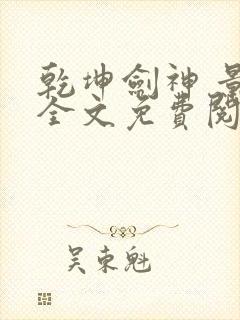 乾坤劍神 最
全文免費閱
吴東魁